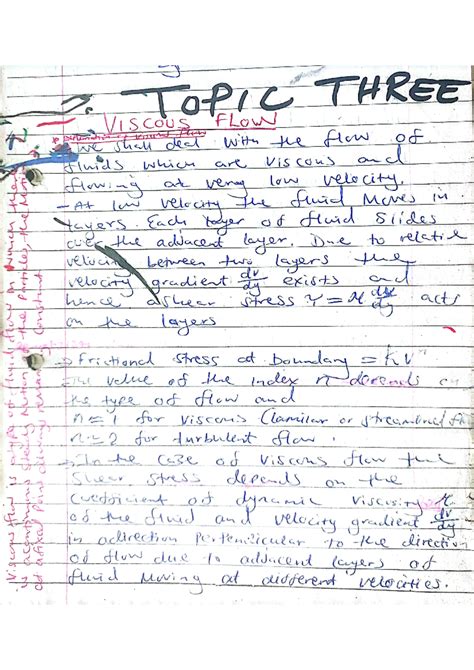 TOPIC THREE
VISCOUS FLOW
We shall deal with the flow of
fluids which are viscous and
flowing at very low velocity.
- At low velocity the fluid moves in
layers. Each layer of fluid slides
over the adjacent layer. Due to relative
velocity between two layers the
velocity gradient dv/dy exists and
hence a shear stress τ = μ du/dy acts
on the layers
→ Frictional stress at boundary = kvⁿ
The value of the index n depends on
the type of flow and
n = 1 for viscous (Lamilar or streamlined
n = 2 for turbulent flow.
→ In the case of viscous flow the
shear stress depends on the
coefficient of dynamic viscosity μ
of the fluid and velocity gradient dv/dy
in adirection perpendicular to the direction
of flow due to adjacent layers of
fluid moving at different velocities.
Viscous flow is a type of fluid flow in which there
is a continuous steady motion of the particles, the motion
at a fixed point always remaining constant